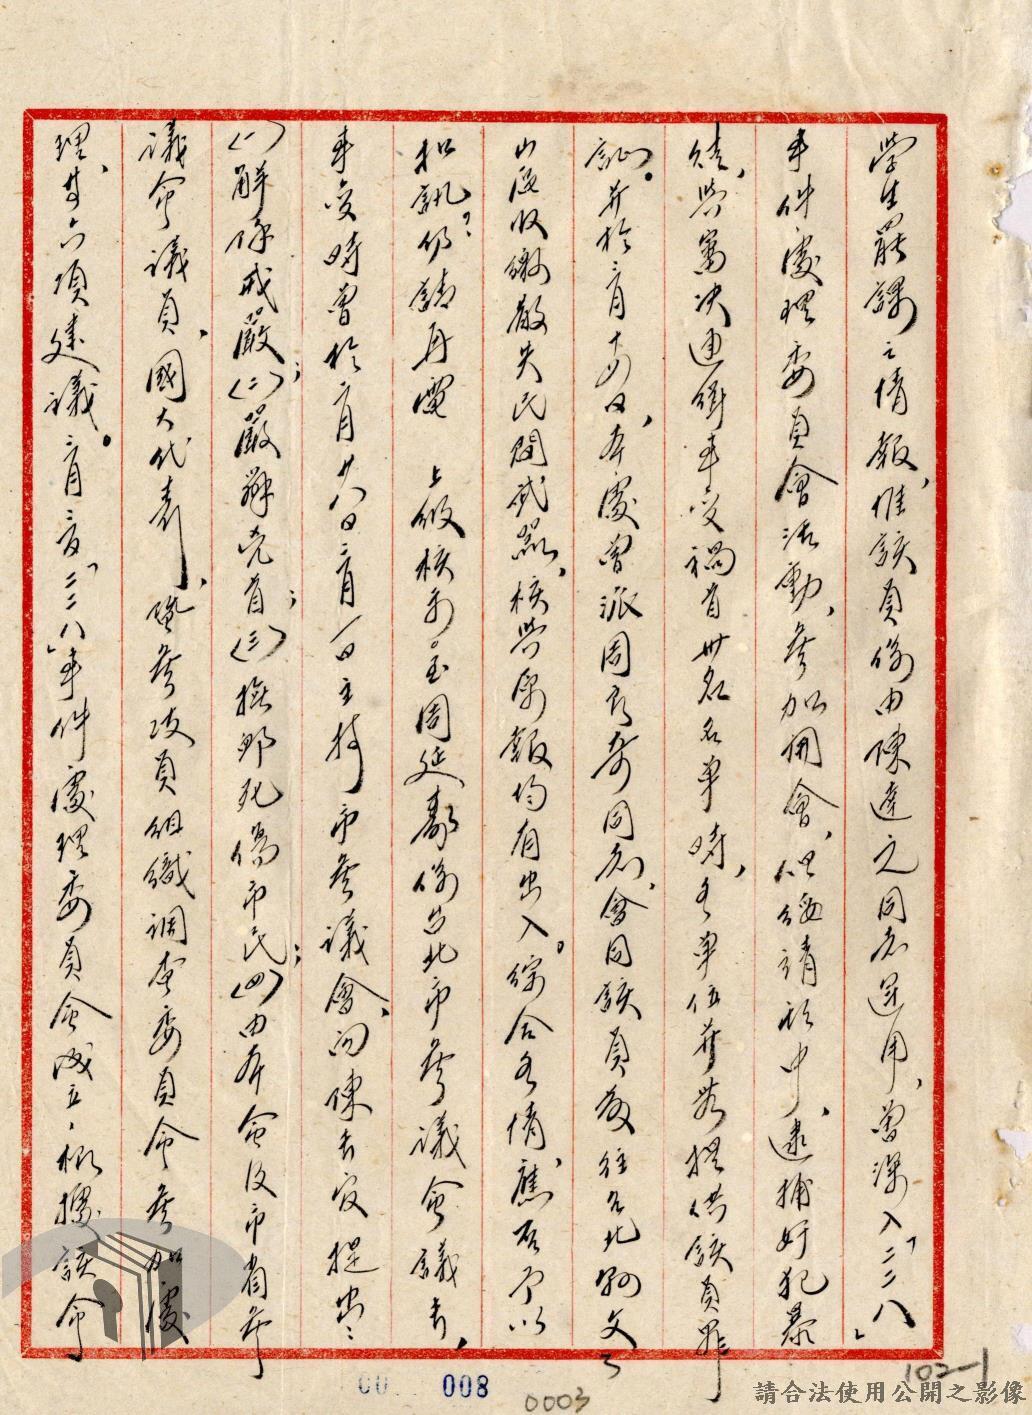 學生罷課之情報，惟該員係由陳達元同志運用，曾深入「二二八」
事件處理委員會活動，參加開會，但綏靖期中，逮捕奸犯暴
徒，與篤決迪街事變禍首卅名名單時，各單位並無提供該員罪
証。并於三月十日，本處曾派周同志會同該員前往台北縣文
山區收繳散失民間武器，核與原報均有出入。綜合各情，應否予以
扣訊？仍請再電 上級核示。至周延壽係台北市參議會議長，
事變時曾於二月廿八日三月一日主持市參議會，向陳長官提出：
(一)解除戒嚴；(二)嚴辦兇首；(三)撫卹死傷市民；(四)由本會及市省參
議會議員，國大代表，暨參政員組織調查委員會參加處
理，等六項建議。三月二日「二二八」事件處理委員會成立，根據該會
008
0003
102-1
請合法使用公開之影像